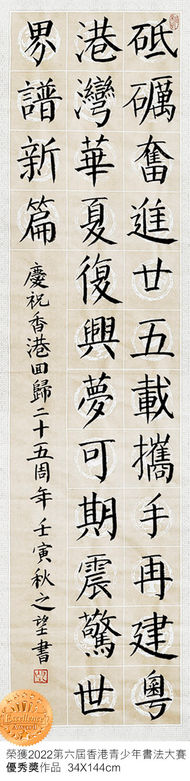 砥礪奮進廿五載攜手再建粵
港灣華夏復興夢可期震驚世
界譜新篇
慶祝香港回歸二十五周年 壬寅秋之望書
榮獲2022第六屆香港青少年書法大賽
優秀獎作品 34X144cm